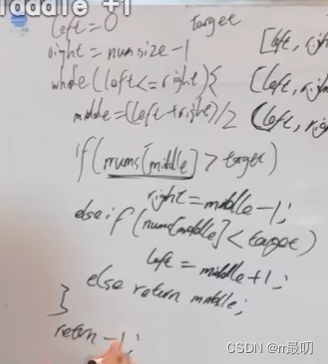 iddle +1
left = 0 target
right = numsize - 1 [left, rig
while (left <= right) { [left, rig
middle = (left + right) / 2 (left, rig
if (nums[middle] > target)
right = middle - 1;
else if (nums[middle] < target)
left = middle + 1;
else return middle;
}
return -1;
CSDN @m最叨